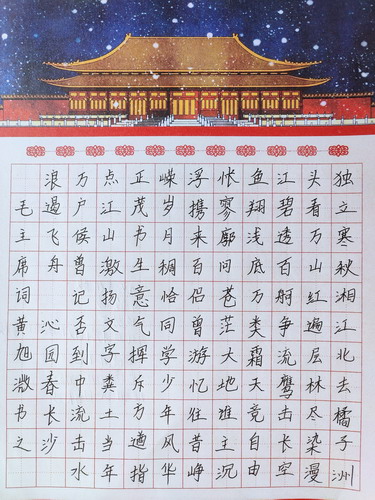 独立寒秋湘江北去橘子洲
头看万山红遍层林尽染漫
江碧透百舸争流鹰击长空
鱼翔浅底万类霜天竞自由
怅寥廓问苍茫大地谁主沉
浮携来百侣曾游忆往昔峥
嵘岁月稠恰同学少年风华
正茂书生意气挥斥方遒指
点江山激扬文字粪土当年
万户侯曾记否到中流击水
浪遏飞舟 沁园春长沙
毛主席词黄旭溦书之